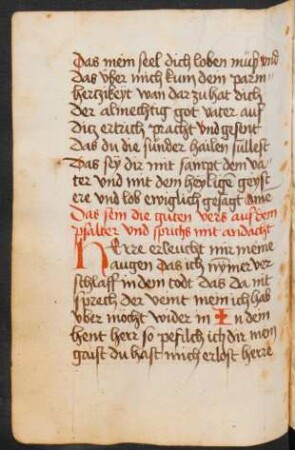 Das mein seel dich loben müß vnd
das vber mich kum dein parm¬
hertzikeyt wan dar zu hat dich
der almechtig got vater auf
ditz ertrich pracht vnd gesont
das du die sünder hailen süllest
Das sey dir mit sampt dem va¬
ter vnd mit dem heylige geyst
ere vnd lob ewiglich gesagt ame
Das sein die guten vers auß dem
psalter vnd sprichs mit andacht
Herre erleucht mir meine
augen das ich nymer ver
schlaff in dem todt das da nit
sprech der veint mein ich hab
vber mocht wider in In dein
hent herr so pefilch ich dir mein
gaist du hast mich erlost herre